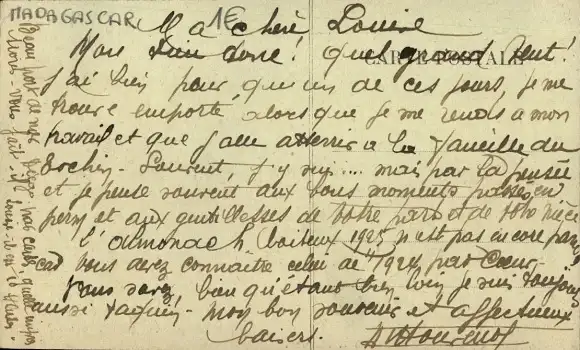 MADAGASCAR
1€
Ma chère Louise
CARTE POSTALE
Mon Dieu donc! quel vent!
J'ai bien peur que un de ces jours, je me
trouve emporté, alors que je me rends à mon
travail et que j'aille atterrir à la
Laurent, j'y suis.... mais par la pensée
et je pense souvent aux bons moments passés en
perm et aux gentillesses de votre part et de votre nièce
l'almanach boiteux 1925 n'est pas encore paru
car vous devez connaître celui de 1924 par cœur.
Vous savez bien qu'étant bien loin je suis toujours
aussi taquin - mon bon souvenir et affectueux
baisers.